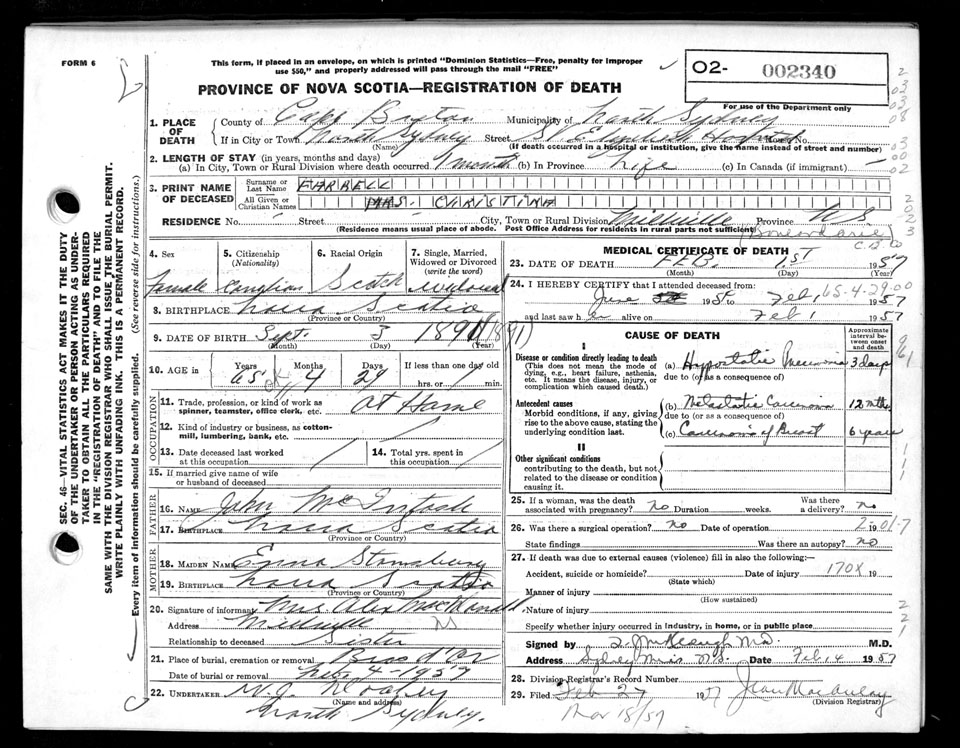 FORM 6
This form, if placed in an envelope, on which is printed "Dominion Statistics—Free, penalty for improper
use $50," and properly addressed will pass through the mail "FREE"
O2- 002340
PROVINCE OF NOVA SCOTIA—REGISTRATION OF DEATH
For use of the Department only
1. PLACE OF DEATH
County of Cape Breton Municipality of North Sydney
If in City or Town North Sydney Street St Elizabeth Hospital
(Name) (If death occurred in a hospital or institution, give the name instead of street and number)
2. LENGTH OF STAY (in years, months and days)
(a) In City, Town or Rural Division where death occurred 1 month (b) In Province Life (c) In Canada (if immigrant) —
3. PRINT NAME OF DECEASED
Surname or Last Name FARRELL
All Given or Christian Names MRS. CHRISTINA
RESIDENCE No. Street City, Town or Rural Division Millville Province N S
(Residence means usual place of abode. Post Office Address for residents in rural parts not sufficient)
(Boularderie)
C. B. Co
4. Sex Female
5. Citizenship (Nationality) Canadian
6. Racial Origin Scotch
7. Single, Married, Widowed or Divorced (write the word) Widowed
8. BIRTHPLACE Nova Scotia
(Province or Country)
9. DATE OF BIRTH Sept. 3 1891 (1891)
(Month) (Day) (Year)
10. AGE in Years 65 Months 4 Days 29 If less than one day old hrs. or min.
OCCUPATION
11. Trade, profession, or kind of work as spinner, teamster, office clerk, etc. At Home
12. Kind of industry or business, as cotton-mill, lumbering, bank, etc.
13. Date deceased last worked at this occupation
14. Total yrs. spent in this occupation
15. If married give name of wife or husband of deceased
FATHER
16. NAME John McIntosh
17. BIRTHPLACE Nova Scotia
(Province or Country)
MOTHER
18. MAIDEN NAME Emma Stansbury
19. BIRTHPLACE Nova Scotia
(Province or Country)
20. Signature of informant Mrs. Alex MacDonald
Address Millville NS
Relationship to deceased Sister
21. Place of burial, cremation or removal Bras d'Or
Date of burial or removal Feb. 4 - 1957
22. UNDERTAKER W. J.
(Name and address)
North Sydney.
MEDICAL CERTIFICATE OF DEATH
23. DATE OF DEATH FEB. 1ST 1957
(Month) (Day) (Year)
24. I HEREBY CERTIFY that I attended deceased from:
65-4-29-00
June 1956 to Feb, 1957
and last saw her alive on Feb 1 1957
CAUSE OF DEATH
Approximate interval between onset and death
I
Disease or condition directly leading to death
(This does not mean the mode of dying, e.g., heart failure, asthenia, etc. It means the disease, injury, or complication which caused death.)
(a) Hypostatic Pneumonia 3 days
due to (or as a consequence of)
Antecedent causes
Morbid conditions, if any, giving rise to the above cause, stating the underlying condition last.
(b) Metastatic Carcinoma 12 mths
due to (or as a consequence of)
(c) Carcinoma of Breast 6 years
II
Other significant conditions
contributing to the death, but not related to the disease or condition causing it.
25. If a woman, was the death associated with pregnancy? no Duration weeks. Was there a delivery? no
26. Was there a surgical operation? no Date of operation 19
2-01-7
State findings Was there an autopsy? no
27. If death was due to external causes (violence) fill in also the following:—
Accident, suicide or homicide? Date of injury 170X 19
(State which)
Manner of injury
(How sustained)
Nature of injury
Specify whether injury occurred in industry, in home, or in public place
Signed by J. McKeough M.D. M.D.
Address Sydney Mines N.S. Date Feb 4 1957
28. Division Registrar's Record Number
29. Filed Feb 27 1957 Jean MacAulay
(Division Registrar)
Mar 18/57
SEC. 46—VITAL STATISTICS ACT MAKES IT THE DUTY
OF THE UNDERTAKER OR PERSON ACTING AS UNDER-
TAKER TO OBTAIN ALL THE PARTICULARS REQUIRED
IN THE "REGISTRATION OF DEATH" AND TO FILE THE
SAME WITH THE DIVISION REGISTRAR WHO SHALL ISSUE THE BURIAL PERMIT.
WRITE PLAINLY WITH UNFADING INK. THIS IS A PERMANENT RECORD.
Every item of information should be carefully supplied. (See reverse side for instructions.)